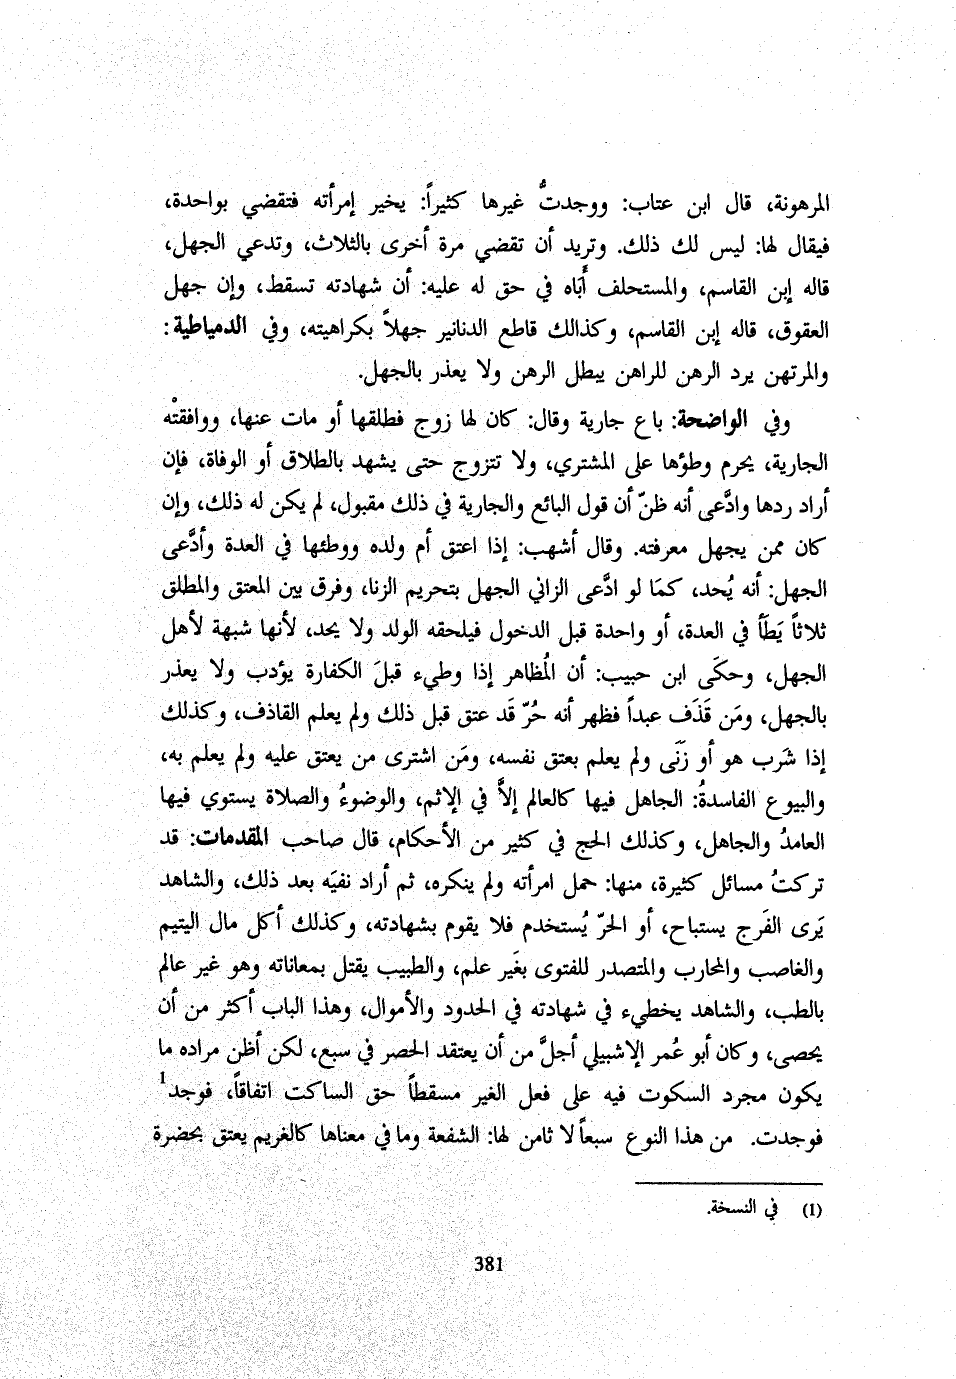 المرهونة، قال ابن عتاب: ووجدتُّ غيرها كثيراً: يخير إمرأته فتقضي بواحدة،
فيقال لها: ليس لك ذلك. وتريد أن تقضي مرة أخرى بالثلاث، وتدعي الجهل،
قاله إبن القاسم، والمستحلف أَباه في حق له عليه: أن شهادته تسقط، وإن جهل
العقوق، قاله إبن القاسم، وكذالك قاطع الدنانير جهلاً بكراهيته، وفي الدمياطية:
والمرتهن يرد الرهن للراهن يبطل الرهن ولا يعذر بالجهل.
وفي الواضحة: باع جارية وقال: كان لها زوج فطلقها أو مات عنها، ووافقتْه
الجارية، يحرم وطؤها على المشتري، ولا تتزوج حتى يشهد بالطلاق أو الوفاة، فإن
أراد ردها وادَّعى أنه ظنّ أن قول البائع والجارية في ذلك مقبول، لم يكن له ذلك، وإن
كان ممن يجهل معرفته. وقال أشهب: إذا اعتق أم ولده ووطئها في العدة وأدَّعى
الجهل: أنه يُحد، كمَا لو ادَّعى الزاني الجهل بتحريم الزنا، وفرق بين المعتق والمطلق
ثلاثاً يَطَأ في العدة، أو واحدة قبل الدخول فيلحقه الولد ولا يحد، لأنها شبهة لأهل
الجهل، وحكَى ابن حبيب: أن المُظاهر إذا وطيء قبلَ الكفارة يؤدب ولا يعذر
بالجهل، ومَن قَذَف عبداً فظهر أنه حُرّ قَد عتق قبل ذلك ولم يعلم القاذف، وكذلك
إذا شَرب هو أو زَنَى ولم يعلم بعتق نفسه، ومَن اشترى من يعتق عليه ولم يعلم به،
والبيوع الفاسدةُ: الجاهل فيها كالعالم إلاَّ في الإثم، والوضوءُ والصلاة يستوي فيها
العامدُ والجاهل، وكذلك الحج في كثير من الأحكام، قال صاحب المقدمات: قد
تركتُ مسائل كثيرة، منها: حمل امرأته ولم ينكره، ثم أراد نفيَه بعد ذلك، والشاهد
يَرى الفَرج يستباح، أو الحرّ يُستخدم فلا يقوم بشهادته، وكذلك أكل مال اليتيم
والغاصب والمحارب والمتصدر للفتوى بغَير علم، والطبيب يقتل بمعاناته وهو غير عالم
بالطب، والشاهد يخطيء في شهادته في الحدود والأموال، وهذا الباب أكثر من أن
يحصى، وكان أبو عُمر الإشبيلي أجلَّ من أن يعتقد الحصر في سبع، لكن أظن مراده ما
يكون مجرد السكوت فيه على فعل الغير مسقطاً حق الساكت اتفاقاً، فوجد1
فوجدت. من هذا النوع سبعاً لا ثامن لها: الشفعة وما في معناها كالغريم يعتق بحضرة
(1) في النسخة.
381